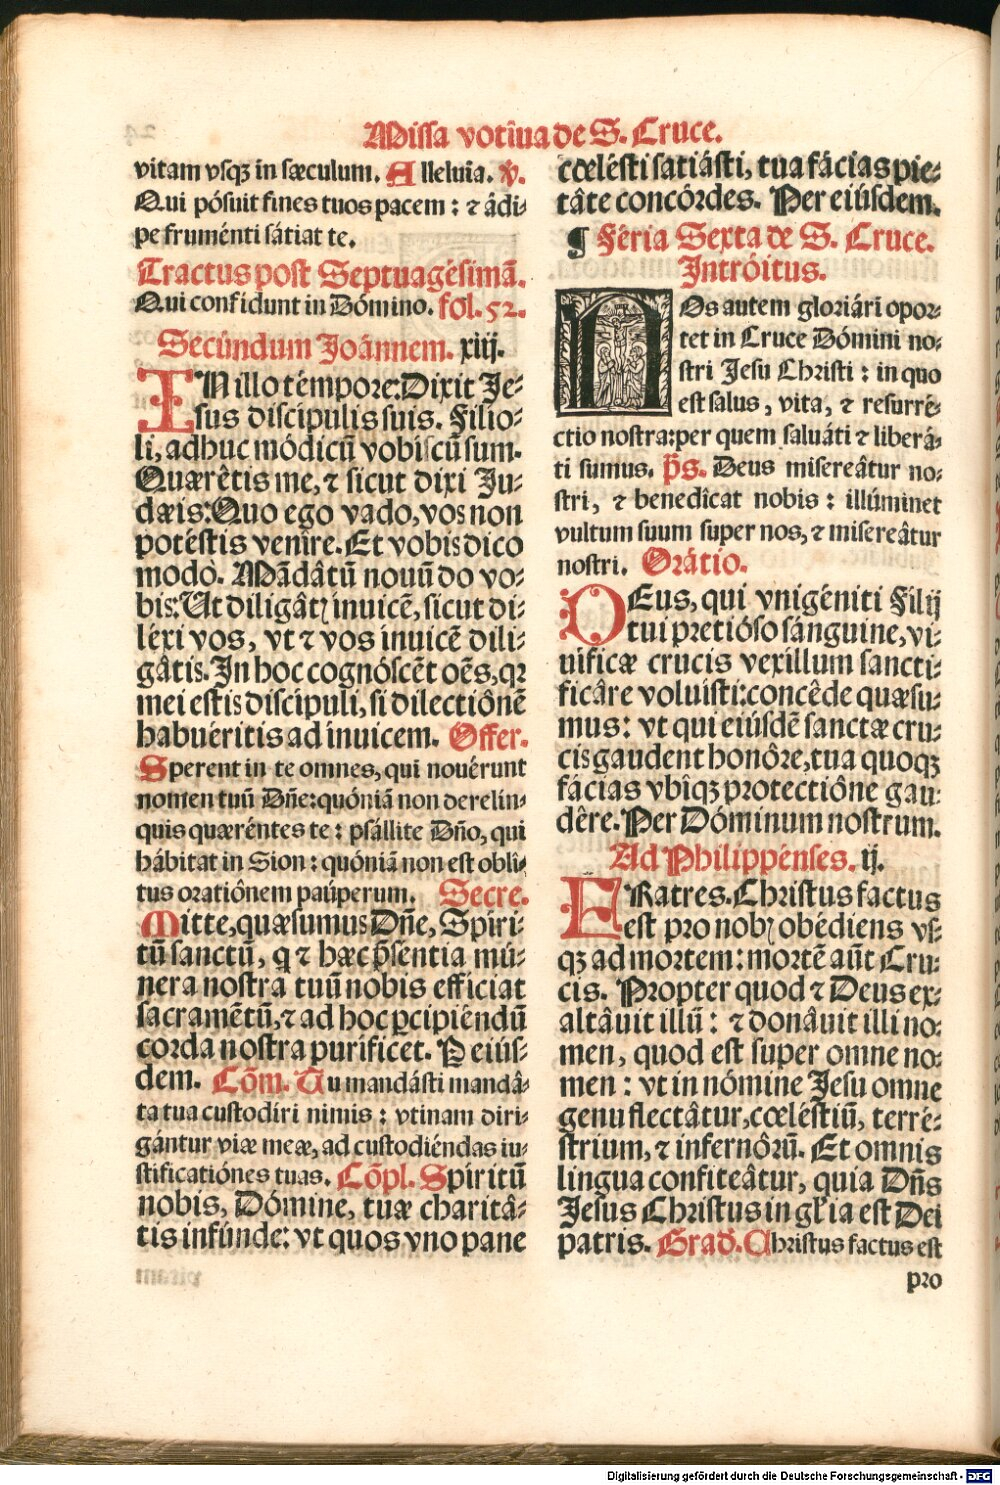 Missa votîua de S. Cruce.
vitam vsqꝫ in sæculum. Alleluia. ℣.
Qui pósuit fines tuos pacem: ⁊ ádi-
pe fruménti sátiat te.
Tractus post Septuagésimā.
Qui confidunt in Dómino. fol. 52.
Secúndum Joánnem. xiij.
IN illo témpore: Dixit Je-
sus discipulis suis. Filio-
li, adhuc módicū vobiscū sum.
Quærêtis me, ⁊ sicut dixi Ju-
dæis: Quo ego vado, vos non
potéstis venîre. Et vobis dico
modo. Mādâtū nouū do vo-
bis: Ut diligâtꝭ inuicē, sicut di-
léxi vos, vt ⁊ vos inuicē dili-
gâtis. In hoc cognóscēt oēs, qꝛ
mei estis discipuli, si dilectiônē
habuéritis ad inuicem. Offer.
Sperent in te omnes, qui nouérunt
nomen tuū Dñe: quóniā non derelin-
quis quæréntes te: psállite Dño, qui
hábitat in Sion: quóniā non est oblî-
tus orationem paúperum. Secre.
Mitte, quæsumus Dñe, Spiri-
tū sanctū, q ⁊ hæc p̄sentia mú-
nera nostra tuū nobis efficiat
sacramētū, ⁊ ad hoc ꝑcipiéndū
corda nostra purificet. P eiús-
dem. Cōm. Tu mandásti mandâ-
ta tua custodiri nimis: vtinam diri-
gántur viæ meæ, ad custodiéndas iu-
stificatiónes tuas. Cōpl. Spiritū
nobis, Dómine, tuæ charitâ-
tis infúnde: vt quos vno pane
cœlésti satiásti, tua fácias pie-
tâte concórdes. Per eiúsdem.
¶ Féria Sexta de S. Cruce.
Intróitus.
NOs autem gloriári opor-
tet in Cruce Dómini no-
stri Jesu Christi: in quo
est salus, vita, ⁊ resurré-
ctio nostra: per quem saluáti ⁊ liberá-
ti sumus. p̄s. Deus misereâtur no-
stri, ⁊ benedîcat nobis: illúminet
vultum suum super nos, ⁊ misereâtur
nostri. Orátio.
DEus, qui vnigéniti Filij
tui pretióso sánguine, vi-
uificæ crucis vexillum sancti-
ficâre voluisti: concêde quæsu-
mus: vt qui eiúsdē sanctæ cru-
cis gaudent honôre, tua quoqꝫ
fácias vbîqꝫ protectiône gau-
dêre. Per Dóminum nostrum.
Ad Philippénses. ij.
FRatres. Christus factus
est pro nobꝭ obédiens vs-
qꝫ ad mortem: mortē aūt Cru-
cis. Propter quod ⁊ Deus ex-
altâuit illū: ⁊ donâuit illi no-
men, quod est super omne no-
men: vt in nómine Jesu omne
genu flectâtur, cœléstiū, terré-
strium, ⁊ infernôrū. Et omnis
lingua confiteâtur, quia Dñs
Jesus Christus in gl'ia est Dei
patris. Grad. Christus factus est
pro
Digitalisierung gefördert durch die Deutsche Forschungsgemeinschaft - DFG